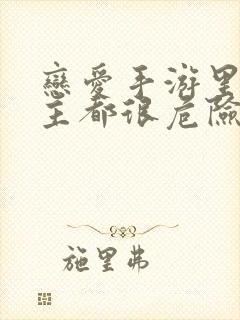 戀愛手游里
主都很危險
施里弗